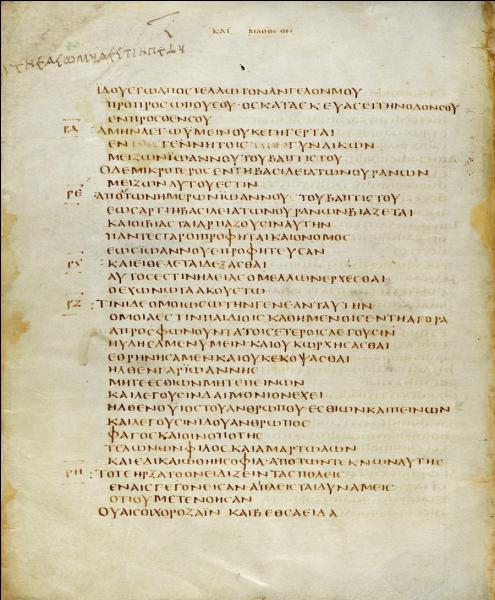 ΚΑΤ ΜΑΘΘΕΟΝ
ΙΔΟΥΕΓΩΑΠΟΣΤΕΛΛΩΤΟΝΑΝΓΕΛΟΝΜΟΥ
ΠΡΟΠΡΟΣΩΠΟΥΣΟΥ·ΟΣΚΑΤΑΣΚΕΥΑΣΕΙΤΗΝΟΔΟΝΣΟΥ
ΕΝΠΡΟΣΘΕΝΣΟΥ
ΡΔ :ΑΜΗΝΛΕΓΩΥΜΕΙΝΟΥΚΕΓΗΓΕΡΤΑΙ
ΕΝ ΓΕΝΝΗΤΟΙΣ ΓΥΝΑΙΚΩΝ
ΜΕΙΖΩΝΪΩΑΝΝΟΥΤΟΥΒΑΠΤΙΣΤΟΥ
ΟΔΕΜΙΚΡΟΤΕΡΟΣΕΝΤΗΒΑΣΙΛΕΙΑΤΩΝΟΥΡΑΝΩΝ
ΜΕΙΖΩΝΑΥΤΟΥΕΣΤΙΝ
ΡΕ :ΑΠΟΤΩΝΗΜΕΡΩΝΪΩΑΝΝΟΥ ΤΟΥΒΑΠΤΙΣΤΟΥ
ΕΩΣΑΡΤΙΗΒΑΣΙΛΕΙΑΤΩΝΟΥΡΑΝΩΝΒΙΑΖΕΤΑΙ
ΚΑΙΟΙΒΙΑΣΤΑΙΑΡΠΑΖΟΥΣΙΝΑΥΤΗΝ
ΠΑΝΤΕΣΓΑΡΟΙΠΡΟΦΗΤΑΙΚΑΙΟΝΟΜΟΣ
ΕΩΣΪΩΑΝΝΟΥΕΠΡΟΦΗΤΕΥΣΑΝ
ΡϚ :ΚΑΙΕΙΘΕΛΕΤΑΙΔΕΞΑΣΘΑΙ
ΑΥΤΟΣΕΣΤΙΝΗΛΕΙΑΣΟΜΕΛΛΩΝΕΡΧΕΣΘΑΙ
ΟΕΧΩΝΩΤΑΑΚΟΥΕΤΩ
ΡΖ :ΤΙΝΙΔΕΟΜΟΙΩΣΩΤΗΝΓΕΝΕΑΝΤΑΥΤΗΝ
ΟΜΟΙΑΕΣΤΙΝΠΑΙΔΙΟΙΣΚΑΘΗΜΕΝΟΙΣΕΝΤΗΑΓΟΡΑ
ΑΠΡΟΣΦΩΝΟΥΝΤΑΤΟΙΣΕΤΕΡΟΙΣΛΕΓΟΥΣΙΝ
ΗΥΛΗΣΑΜΕΝΥΜΕΙΝΚΑΙΟΥΚΩΡΧΗΣΑΣΘΑΙ
ΕΘΡΗΝΗΣΑΜΕΝΚΑΙΟΥΚΕΚΟΨΑΣΘΑΙ
ΗΛΘΕΝΓΑΡΪΩΑΝΝΗΣ
ΜΗΤΕΕΣΘΙΩΝΜΗΤΕΠΕΙΝΩΝ
ΚΑΙΛΕΓΟΥΣΙΝΔΑΙΜΟΝΙΟΝΕΧΕΙ
ΗΛΘΕΝΟΥΪΟΣΤΟΥΑΝΘΡΩΠΟΥΕΣΘΙΩΝΚΑΙΠΕΙΝΩΝ
ΚΑΙΛΕΓΟΥΣΙΝΙΔΟΥΑΝΘΡΩΠΟΣ
ΦΑΓΟΣΚΑΙΟΙΝΟΠΟΤΗΣ
ΤΕΛΩΝΩΝΦΙΛΟΣΚΑΙΑΜΑΡΤΩΛΩΝ
ΚΑΙΕΔΙΚΑΙΩΘΗΗΣΟΦΙΑ·ΑΠΟΤΩΝΤΕΚΝΩΝΑΥΤΗΣ
ΡΗ :ΤΟΤΕΗΡΞΑΤΟΟΝΕΙΔΙΖΕΙΝΤΑΣΠΟΛΕΙΣ
ΕΝΑΙΣΓΕΓΟΝΕΙΣΑΝΑΙΠΛΕΙΣΤΑΙΔΥΝΑΜΕΙΣ
ΟΤΙΟΥΜΕΤΕΝΟΗΣΑΝ
ΟΥΑΙΣΟΙΧΟΡΟΖΑΪΝ ΚΑΙΒΕΘΣΑΕΙΔΑ